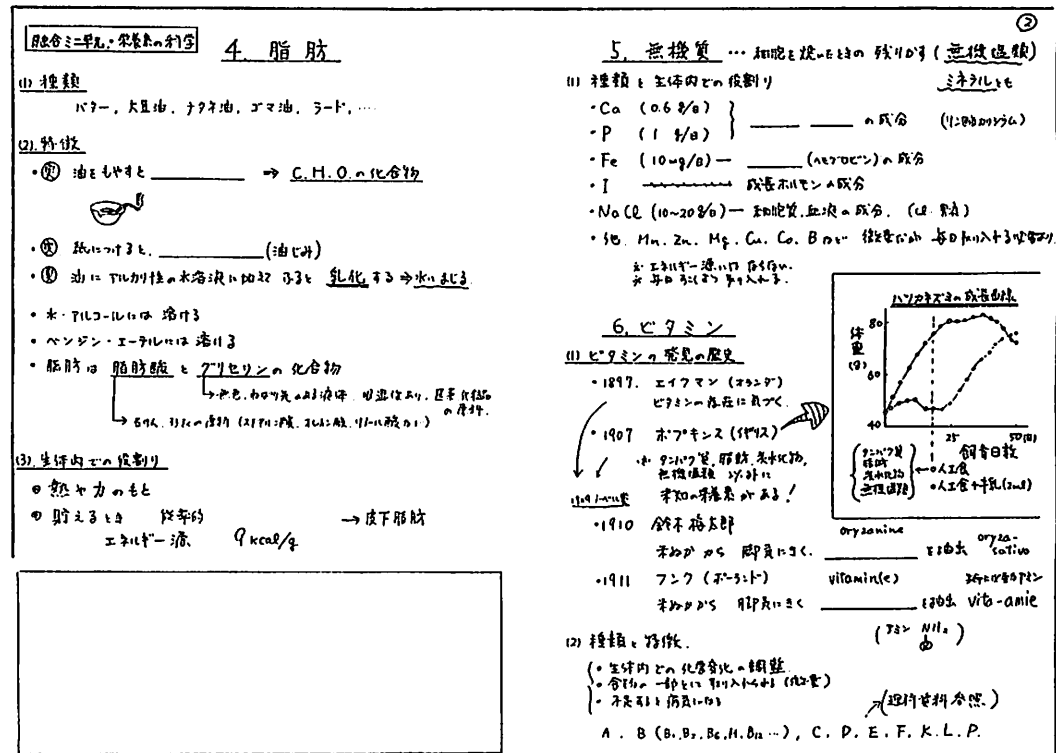 ②
融合ミニ単元・栄養素の科学
4. 脂肪
(1) 種類
バター, 大豆油, ナタネ油, ゴマ油, ラード, ‥‥
(2). 特徴
・実 油をもやすと ⇒ C.H.O.の化合物
・実 紙につけると, (油じみ)
油に アルカリ性の水溶液に加えて ふると 乳化 する ⇒ 水にまじる
・水・アルコールには 溶ける
・ベンジン・エーテルには 溶ける
・脂肪は 脂肪酸 と グリセリン の 化合物
(3). 生体内での役割り
熱や力のもと
貯えるとき 効率的 → 皮下脂肪
エネルギー源 9 kcal/g
5. 無機質 … 細胞を焼いたときの 残りかす (無機塩類)
ミネラルとも
(1) 種類と生体内での役割り
・Ca (0.6 g/日)
・P (1 g/日)
の成分 (リン酸カルシウム)
・Fe (10mg/日) ― (ヘモグロビン) の成分
・I 成長ホルモンの成分
・NaCl (10~20g/日) ― 細胞質, 血液の成分.
・他. Mn. Zn. Mg. Cu. Co. B など 微量だが 毎日取り入れる必要あり.
※ エネルギー源にはならない.
※ 毎日少しずつ取り入れる.
6. ビタミン
(1) ビタミンの発見の歴史
・1897. エイクマン (オランダ)
ビタミンの存在に気づく.
・1907 ホプキンス (イギリス)
タンパク質, 脂肪, 炭水化物,
無機塩類 以外に
未知の栄養素がある!
1929 ノーベル賞
・1910 鈴木梅太郎
oryzanine
米ぬかから 脚気にきく. を抽出 oryza-sativa
・1911 フンク (ポーランド)
vitamin(e)
米ぬかから 脚気にきく を抽出 vita-amie
(アミン NH₂)
ハツカネズミの成長曲線
体重(g)
80
60
40
25
50(日)
飼育日数
タンパク質
脂肪
炭水化物
無機塩類
人工食
人工食+牛乳(2ml)
(2) 種類と特徴.
・生体内での化学変化の調整
・食物の一部として取り入れられる (微量)
・不足すると病気になる
(理科資料参照.)
A. B (B₁, B₂, B₆, H, B₁₂ …), C, D, E, F, K, L, P.